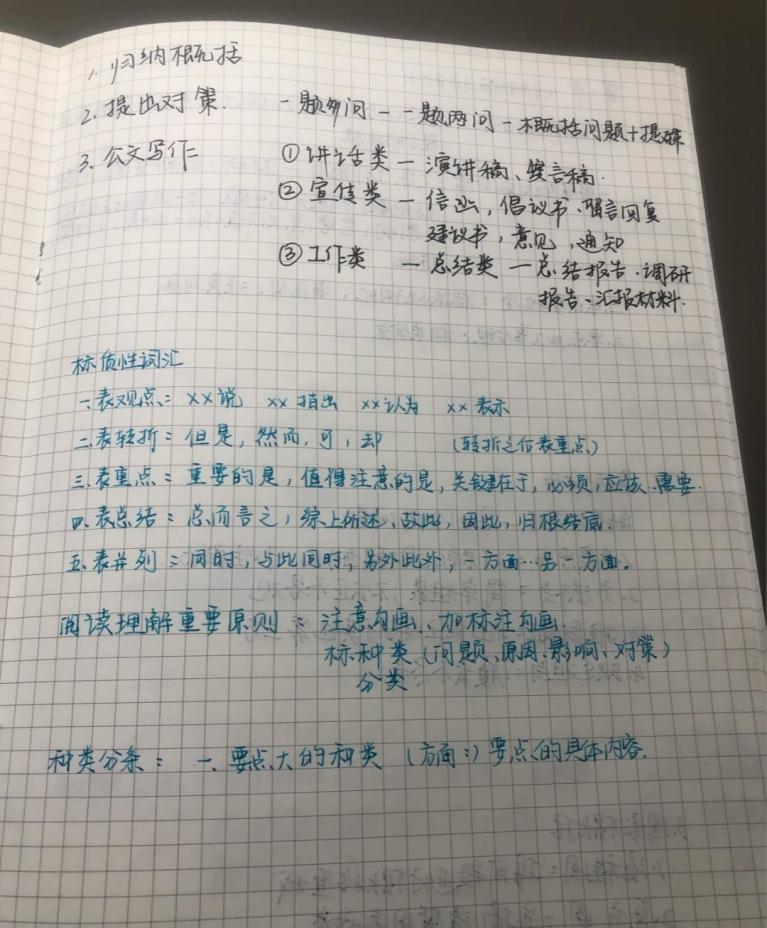 1. 归纳概括
2. 提出对策. 一题多问 - 一题两问 - 概括问题+提对策
3. 公文写作= ① 讲话类 — 演讲稿、发言稿.
② 宣传类 — 信函, 倡议书、留言回复
建议书, 意见, 通知
③ 工作类 — 总结类 — 总结报告、调研
报告、汇报材料.
标质性词汇
一、表观点: xx说 xx指出 xx认为 xx表示
二、表转折: 但是, 然而, 可, 却 (转折之后表重点)
三、表重点: 重要的是, 值得注意的是, 关键在于, 必须, 应该、需要.
四、表总结: 总而言之, 综上所述, 故此, 因此, 归根结底.
五、表并列: 同时, 与此同时, 另外此外, 一方面…另一方面。
阅读理解重要原则: 注意勾画、加标注勾画.
标种类 (问题、原因、影响、对策)
分类
种类分条: 一、要点大的种类 (方面:) 要点的具体内容.